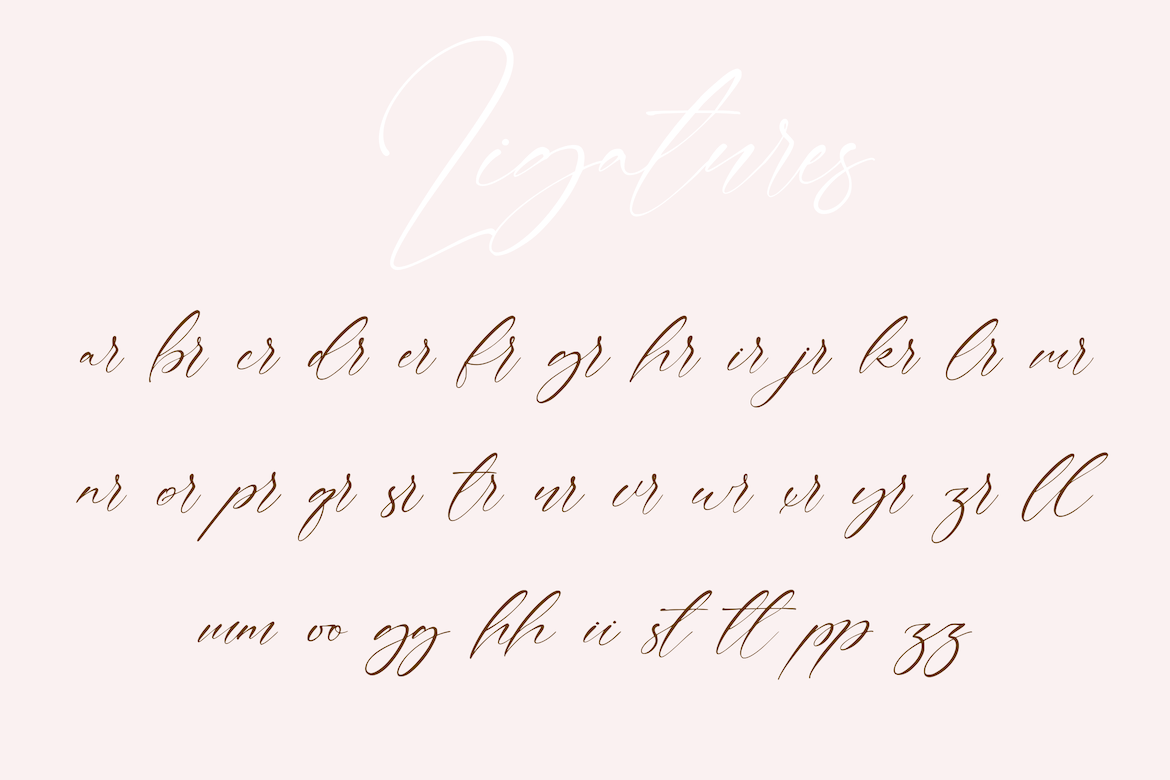 Ligatures
ar br cr dr er fr gr hr ir jr kr lr mr
nr or pr qr sr tr ur vr wr xr yr zr ll
mm oo gg hh ii st tt pp zz